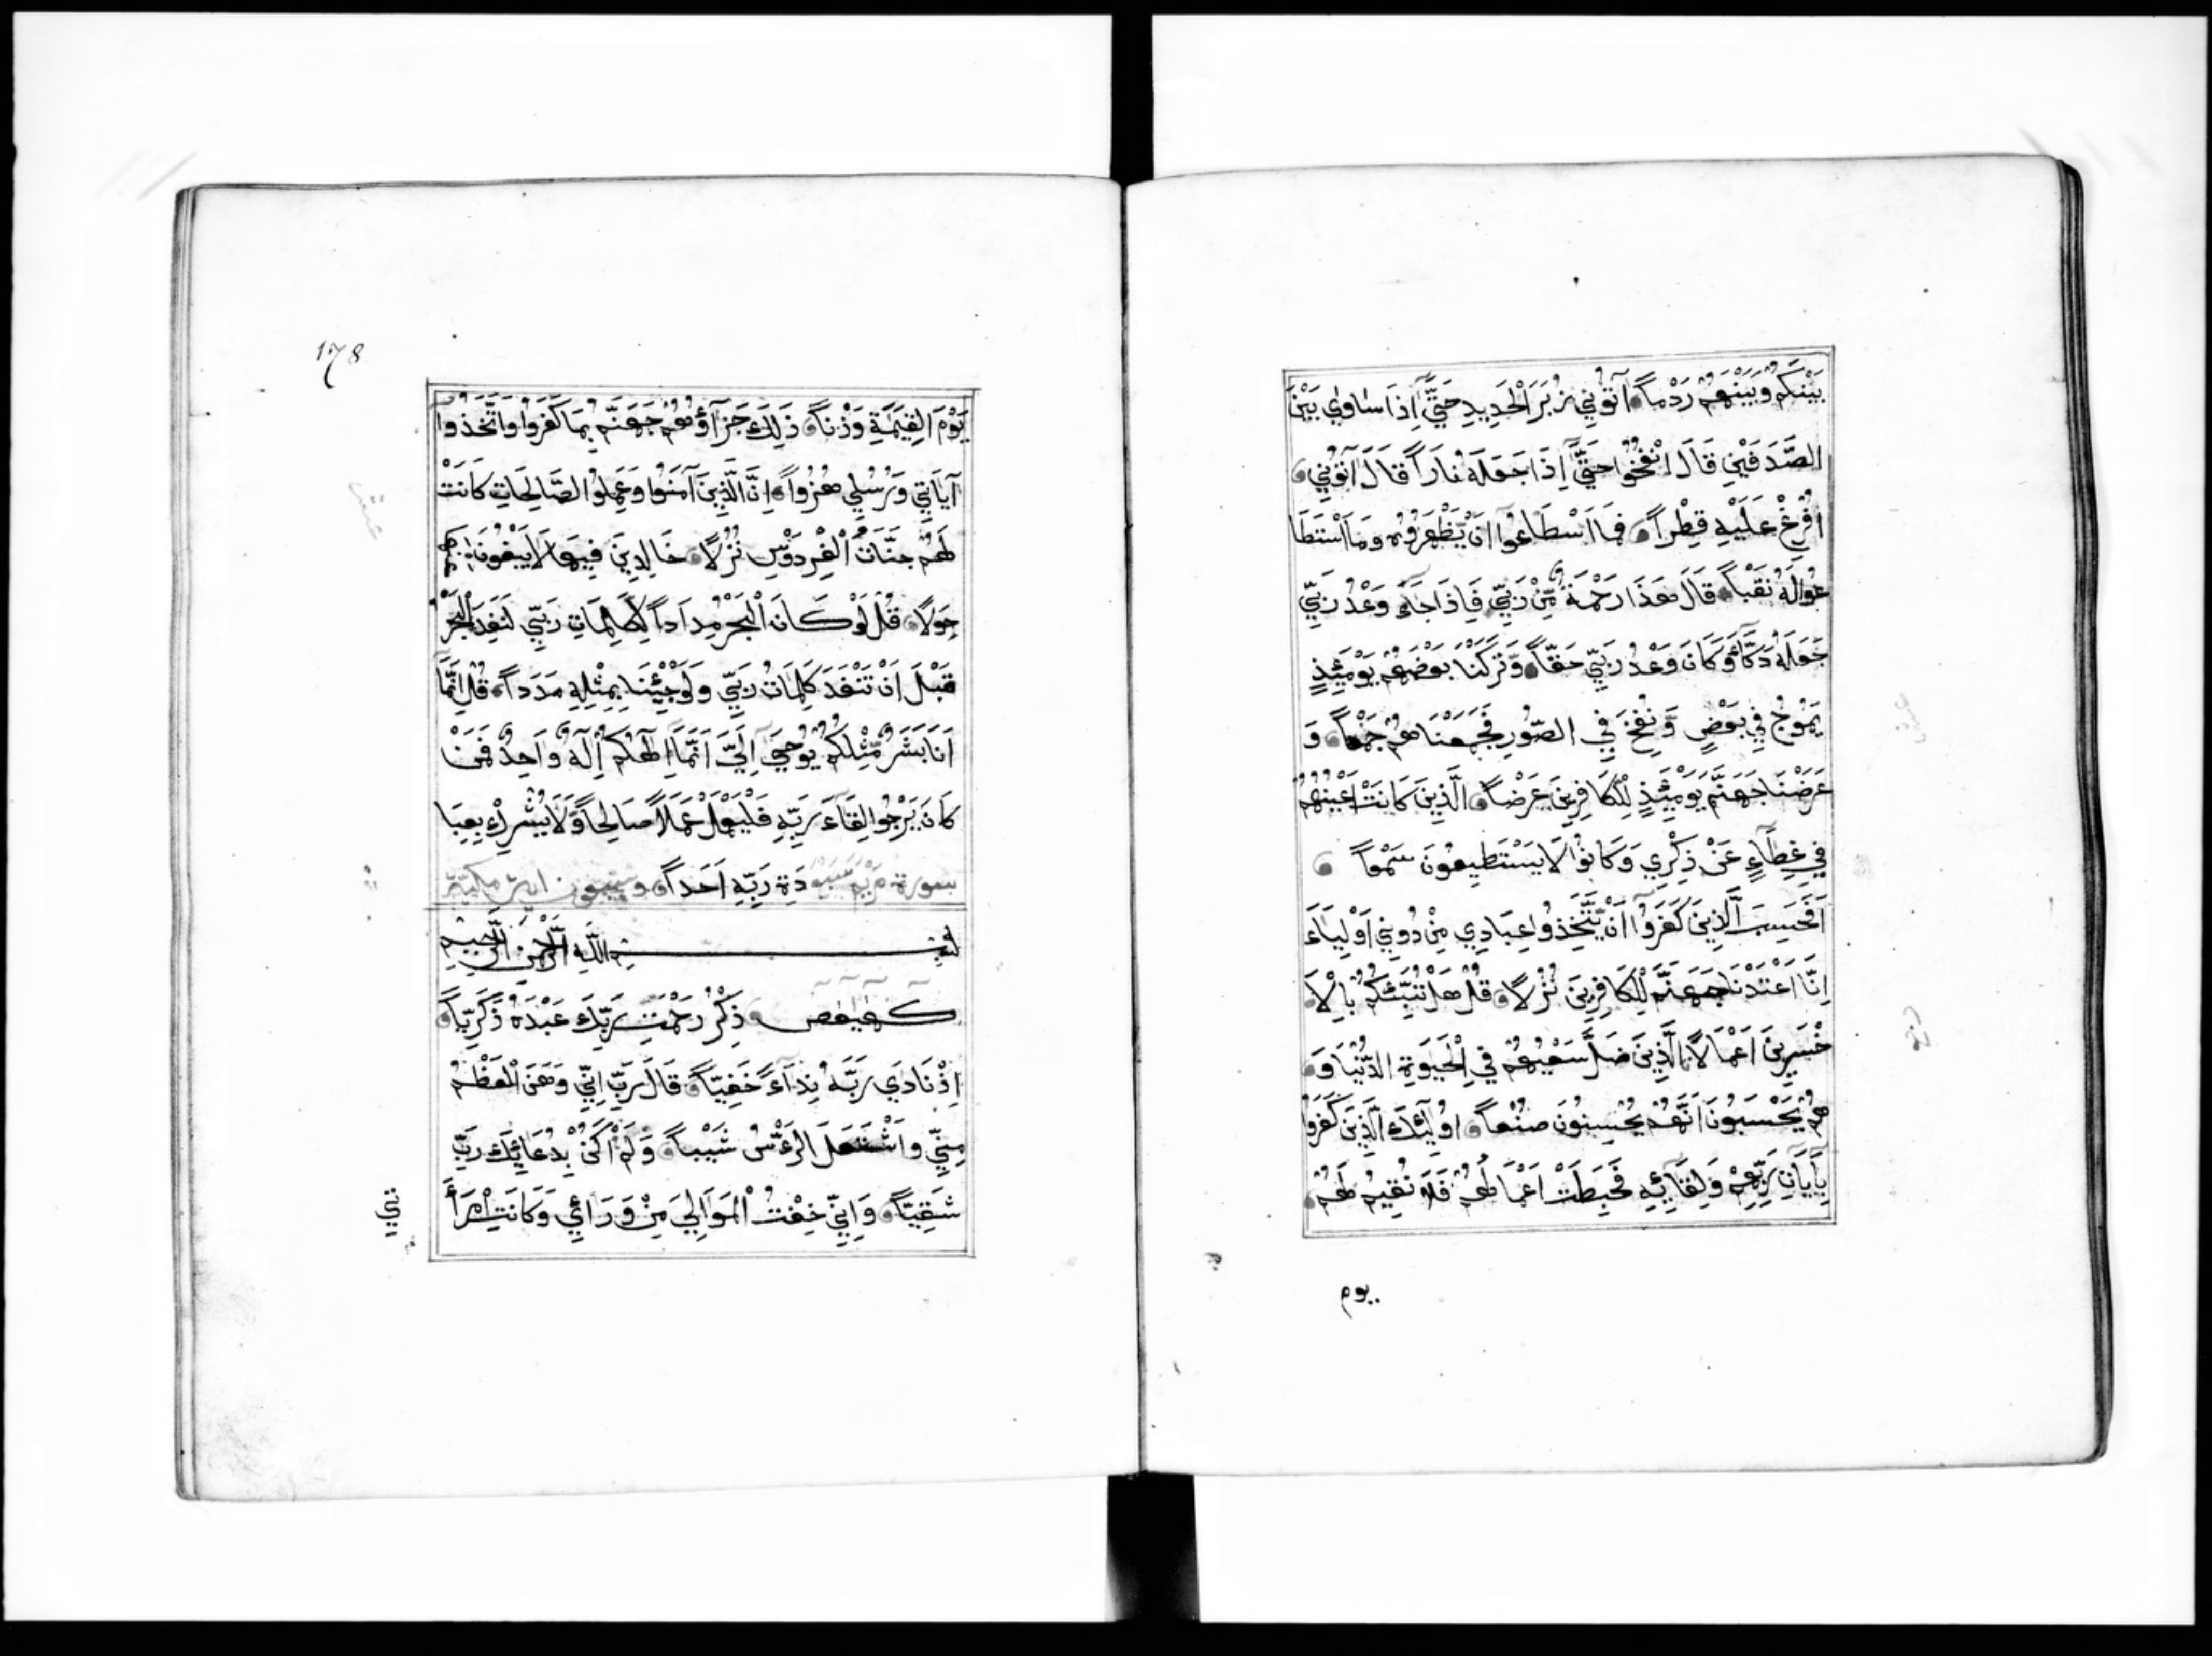 بَيْنَكُمْ وَبَيْنَهُمْ رَدْماً آتُونِي زُبَرَ الْحَدِيدِ حَتَّى اِذَا سَاوٰي بَيْنَ
الصَّدَفَيْنِ قَالَ انْفُخُوا حَتَّى اِذَا جَعَلَهُ نَاراً قَالَ آتُونِي
اُفْرِغْ عَلَيْهِ قِطْراً فَمَا اسْطَاعُوا اَنْ يَّظْهَرُوهُ وَمَا اسْتَطَا
عُوا لَهُ نَقْباً قَالَ هَذَا رَحْمَةٌ مِّنْ رَّبِّي فَاِذَا جَآءَ وَعْدُ رَبِّي
جَعَلَهُ دَكَّآءَ وَكَانَ وَعْدُ رَبِّي حَقّاً وَّتَرَكْنَا بَعْضَهُمْ يَوْمَئِذٍ
يَمُوجُ فِي بَعْضٍ وَّنُفِخَ فِي الصُّورِ فَجَمَعْنَاهُمْ جَمْعاً وَ
عَرَضْنَا جَهَنَّمَ يَوْمَئِذٍ لِّلْكَافِرِينَ عَرْضاً الَّذِينَ كَانَتْ اَعْيُنُهُمْ
فِي غِطَآءٍ عَنْ ذِكْرِي وَكَانُوا لَا يَسْتَطِيعُونَ سَمْعاً
اَفَحَسِبَ الَّذِينَ كَفَرُوا اَنْ يَّتَّخِذُوا عِبَادِي مِنْ دُونِي اَوْلِيَآءَ
اِنَّا اَعْتَدْنَا جَهَنَّمَ لِلْكَافِرِينَ نُزُلًا قُلْ هَلْ نُنَبِّئُكُمْ بِالْاَ
خْسَرِينَ اَعْمَالًا الَّذِينَ ضَلَّ سَعْيُهُمْ فِي الْحَيٰوةِ الدُّنْيَا وَ
هُمْ يَحْسَبُونَ اَنَّهُمْ يُحْسِنُونَ صُنْعاً اُولَئِكَ الَّذِينَ كَفَرُوا
بِآيَاتِ رَبِّهِمْ وَلِقَآئِهِ فَحَبِطَتْ اَعْمَالُهُمْ فَلَا نُقِيمُ لَهُمْ
يوم
178
يَوْمَ الْقِيٰمَةِ وَزْناً ذَلِكَ جَزَآؤُهُمْ جَهَنَّمُ بِمَا كَفَرُوا وَاتَّخَذُوا
آيَاتِي وَرُسُلِي هُزُواً اِنَّ الَّذِينَ آمَنُوا وَعَمِلُوا الصَّالِحَاتِ كَانَتْ
لَهُمْ جَنَّاتُ الْفِرْدَوْسِ نُزُلًا خَالِدِينَ فِيهَا لَا يَبْغُونَ عَنْهَا
حِوَلًا قُلْ لَّوْ كَانَ الْبَحْرُ مِدَاداً لِّكَلِمَاتِ رَبِّي لَنَفِدَ الْبَحْرُ
قَبْلَ اَنْ تَنْفَدَ كَلِمَاتُ رَبِّي وَلَوْ جِئْنَا بِمِثْلِهِ مَدَداً قُلْ اِنَّمَا
اَنَا بَشَرٌ مِّثْلُكُمْ يُوحَى اِلَيَّ اَنَّمَا اِلَهُكُمْ اِلَهٌ وَاحِدٌ فَمَنْ
كَانَ يَرْجُوا لِقَآءَ رَبِّهِ فَلْيَعْمَلْ عَمَلًا صَالِحاً وَّلَا يُشْرِكْ بِعِبَا
سورة مريم دَةِ رَبِّهِ اَحَداً وتسعون اية مكية
بِسْمِ اللَّهِ الرَّحْمَنِ الرَّحِيمِ
كهيعص ذِكْرُ رَحْمَتِ رَبِّكَ عَبْدَهُ زَكَرِيَّا
اِذْ نَادَى رَبَّهُ نِدَآءً خَفِيّاً قَالَ رَبِّ اِنِّي وَهَنَ الْعَظْمُ
مِنِّي وَاشْتَعَلَ الرَّءْسُ شَيْباً وَّلَمْ اَكُنْ بِدُعَائِكَ رَبِّ
شَقِيّاً وَاِنِّي خِفْتُ الْمَوَالِيَ مِنْ وَّرَائِي وَكَانَتِ امْرَأَ
تي